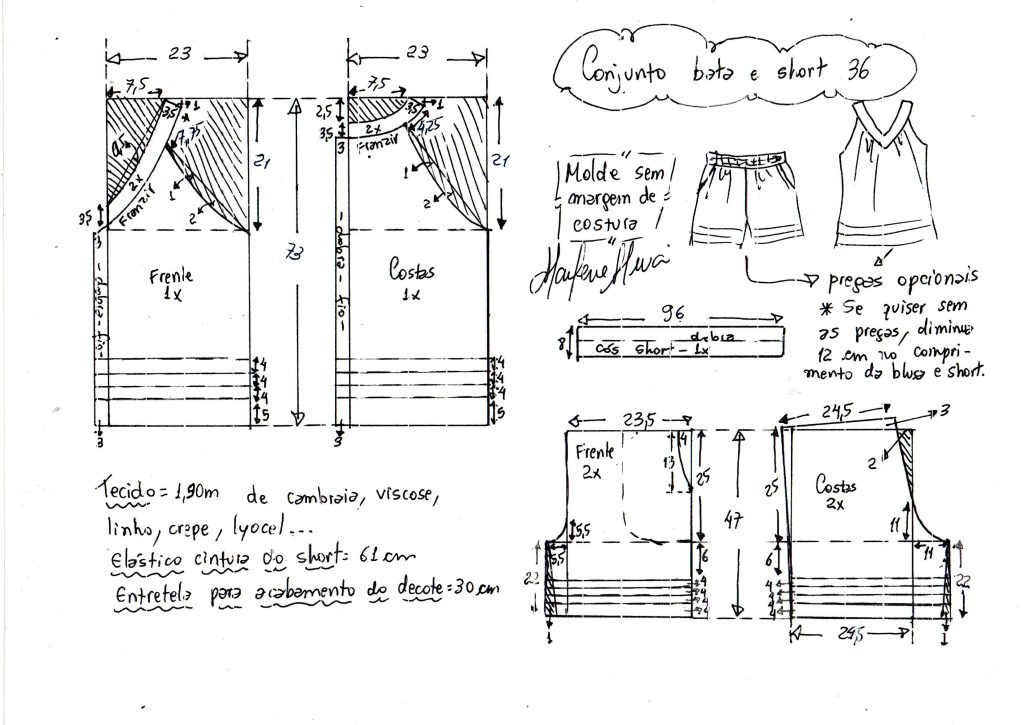 Conjunto bata e short 36
23
7,5
3,5
1
7,75
0,5
2x
Franzir
1
2
21
3,5
3
73
Frente
1x
dobra - fio
4
4
4
5
3
23
7,5
2,5
3,5
3,5
1
4,25
2x
Franzir
3
1
2
21
dobra - fio
Costas
1x
4
4
4
5
3
Molde sem
margem de
costura
preges opcionais
* Se quiser sem
as pregas, diminua
12 cm no compri-
mento da blusa e short.
96
8
dobra
cós short - 1x
Tecido = 1,90m de cambraia, viscose,
linho, crepe, lyocel...
Elástico cintura do short = 61 cm
Entretela para acabamento do decote = 30 cm
23,5
Frente
2x
4
13
25
5,5
5,5
6
4
4
4
4
22
1
47
24,5
3
2
Costas
2x
25
11
11
6
4
4
4
4
22
1